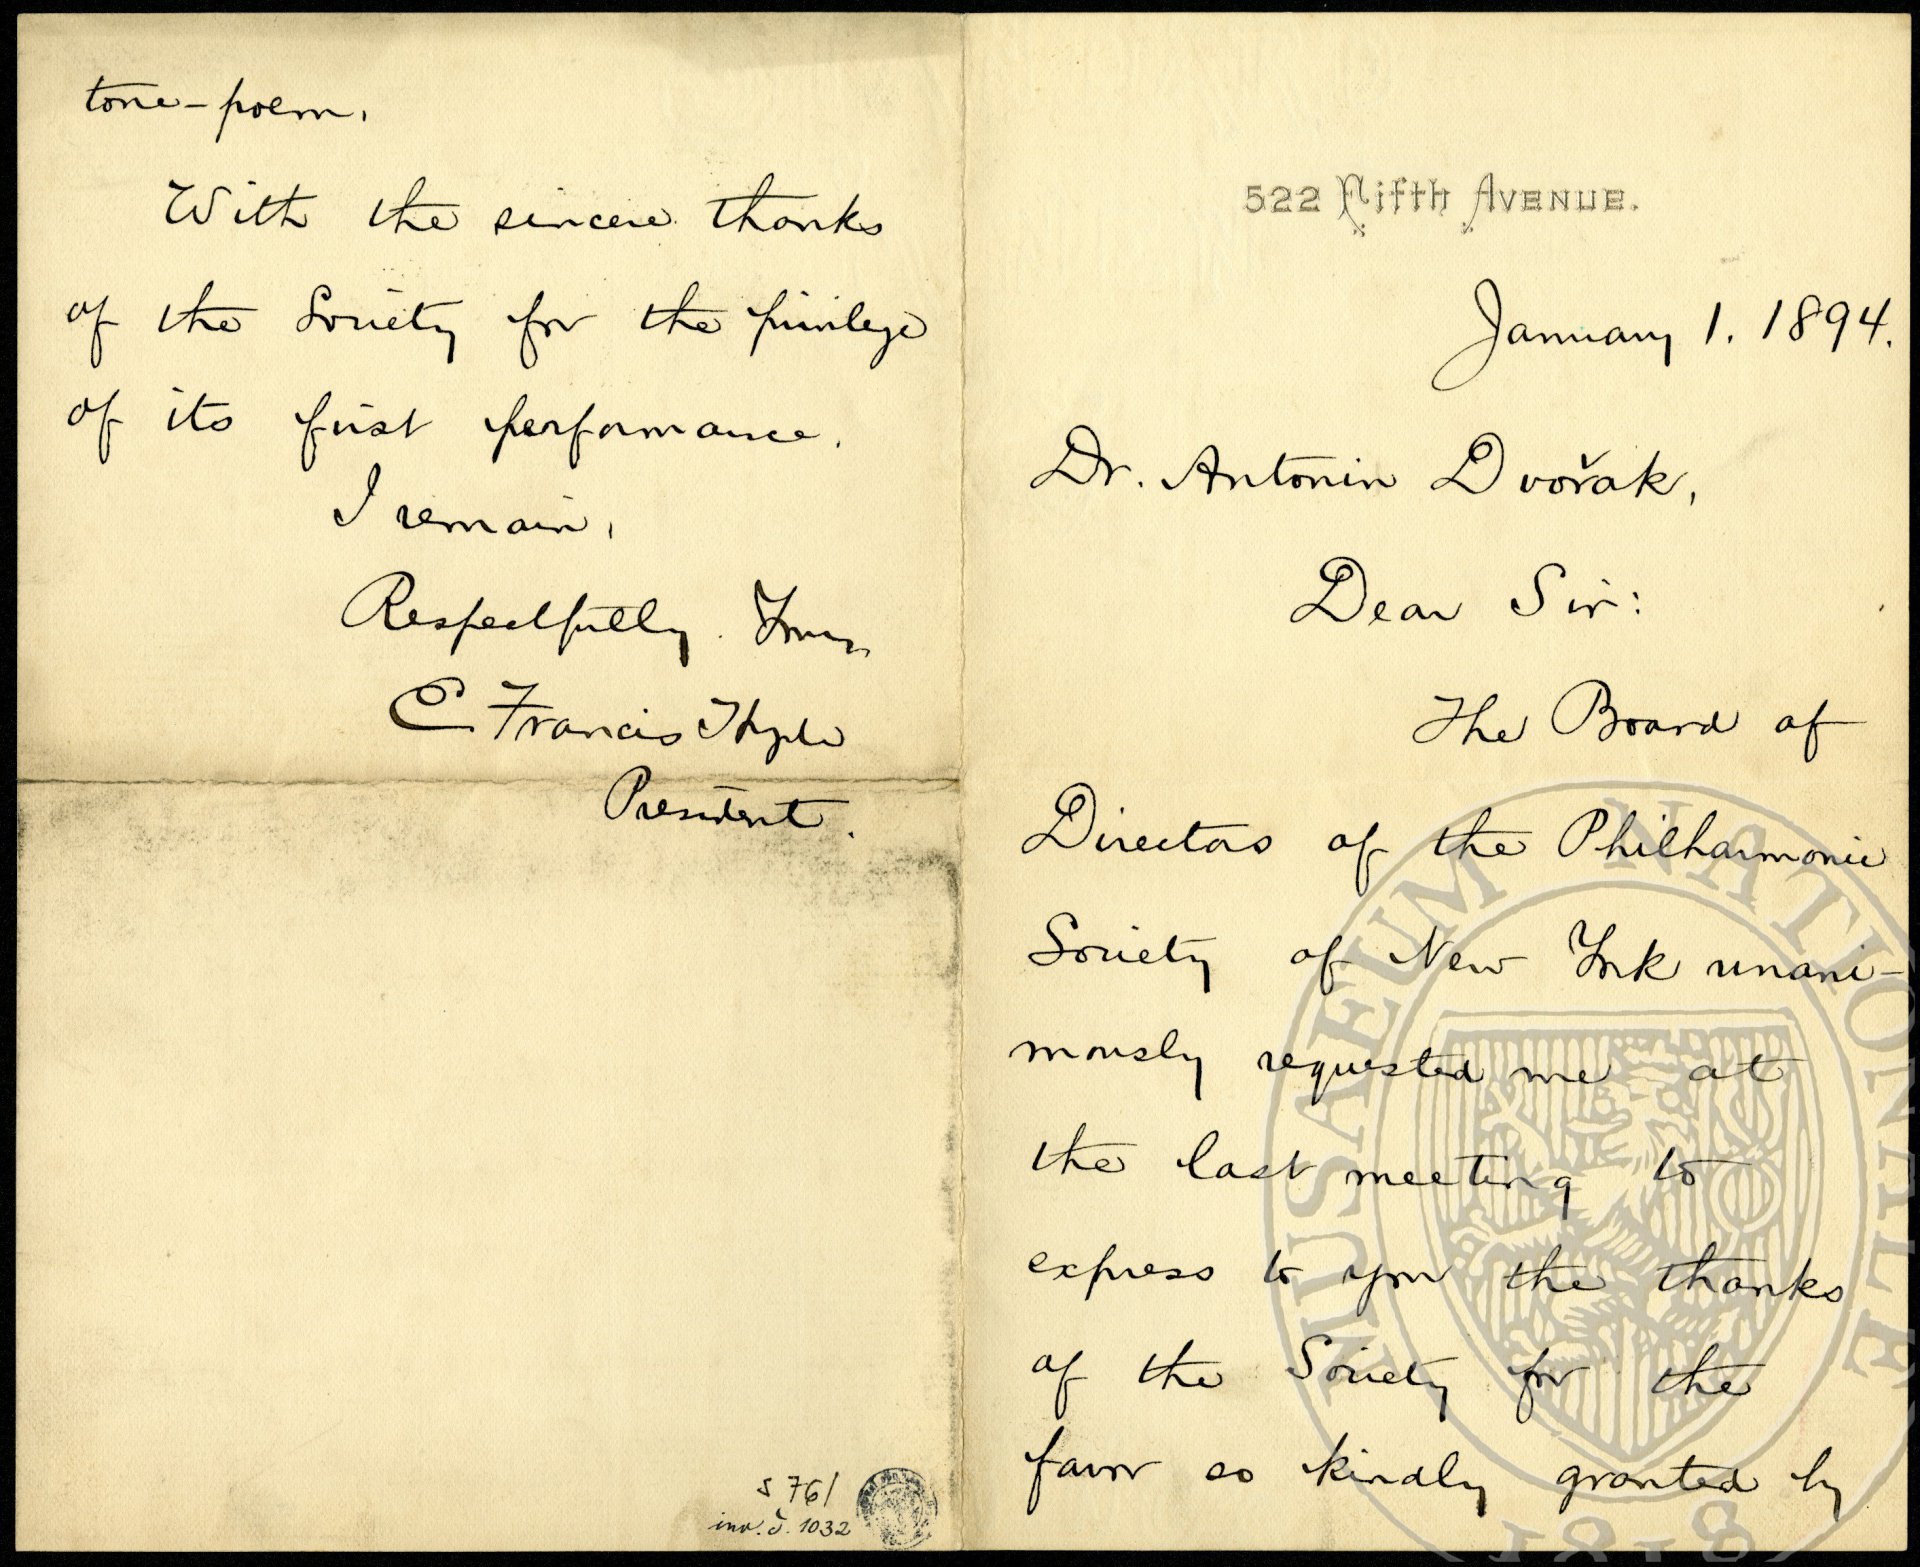 522 Fifth Avenue.
January 1. 1894.
Dr. Antonin Dvořak,
Dear Sir:
The Board of
Directors of the Philharmonic
Society of New York unani-
mously requested me at
the last meeting to
express to you the thanks
of the Society for the
favor so kindly granted by
tone-poem.
With the sincere thanks
of the Society for the privilege
of its first performance.
I remain,
Respectfully Yours
E Francis Hyde
President.
S 76/
inv. č. 1032
MUSAEUM NATIONALE
1818